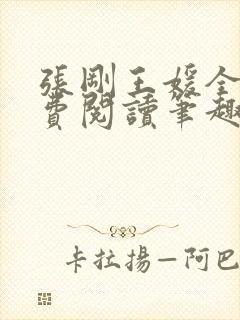 張剛王媛全
費閱讀筆趣
卡拉揚—阿巴